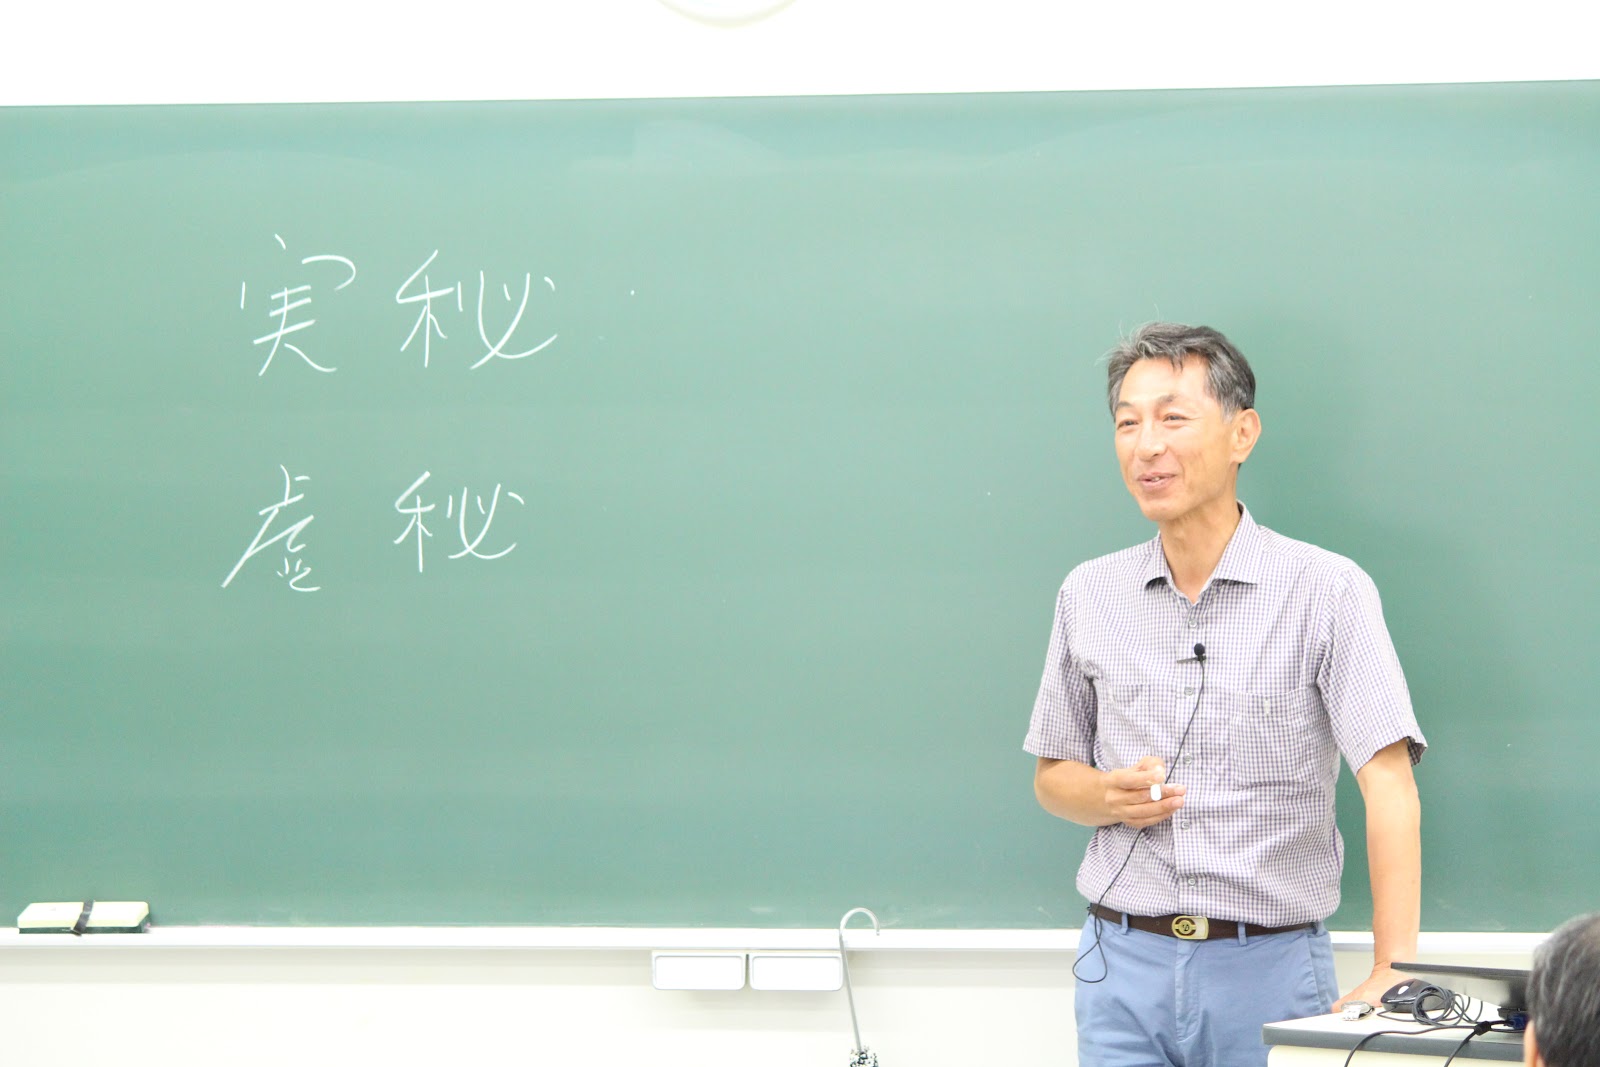 実秘
虚秘